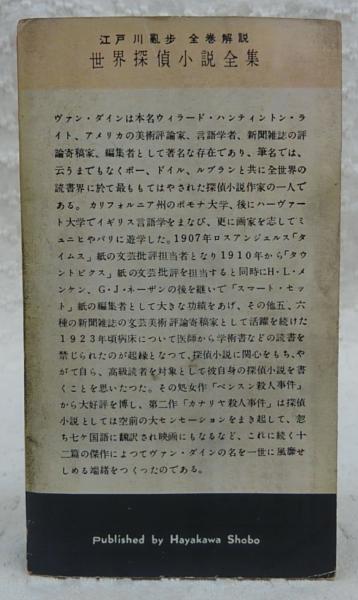 江戸川亂歩 全巻解説
世界探偵小説全集
ヴァン・ダインは本名ウィラード・ハンティントン・ラ
イト、アメリカの美術評論家、言語学者、新聞雑誌の評
論寄稿家、編集者として著名な存在であり、筆名では、
云うまでもなくポー、ドイル、ルブランと共に全世界の
読書界に於て最ももてはやされた探偵小説作家の一人で
ある。カリフォルニア州のポモナ大学、後にハーヴァー
ト大学でイギリス言語学をまなび、更に画家を志してミ
ュニヒやパリに遊学した。1907年ロスアンジェルス「タ
イムス」紙の文芸批評担当者となり1910年から「タウ
ントピクス」紙の文芸批評を担当すると同時にH・L・メ
ンケン、G・J・ネーザンの後を継いで「スマート・セッ
ト」紙の編集者として大きな功績をあげ、その他五、六
種の新聞雑誌の文芸美術評論寄稿家として活躍を続けた
1923年頃病床について医師から学術書などの読書を
禁じられたのが起縁となつて、探偵小説に関心をもち、や
がて自ら、高級読者を対象として彼自身の探偵小説を書
くことを思いたつた。その処女作「ベンスン殺人事件」
から大好評を博し、第二作「カナリヤ殺人事件」は探偵
小説としては空前の大センセーションをまき起して、忽
ち七ケ国語に飜訳され映画にもなるなど、これに続く十
二篇の傑作によつてヴァン・ダインの名を一世に風靡せ
しめる端緒をつくつたのである。
Published by Hayakawa Shobo